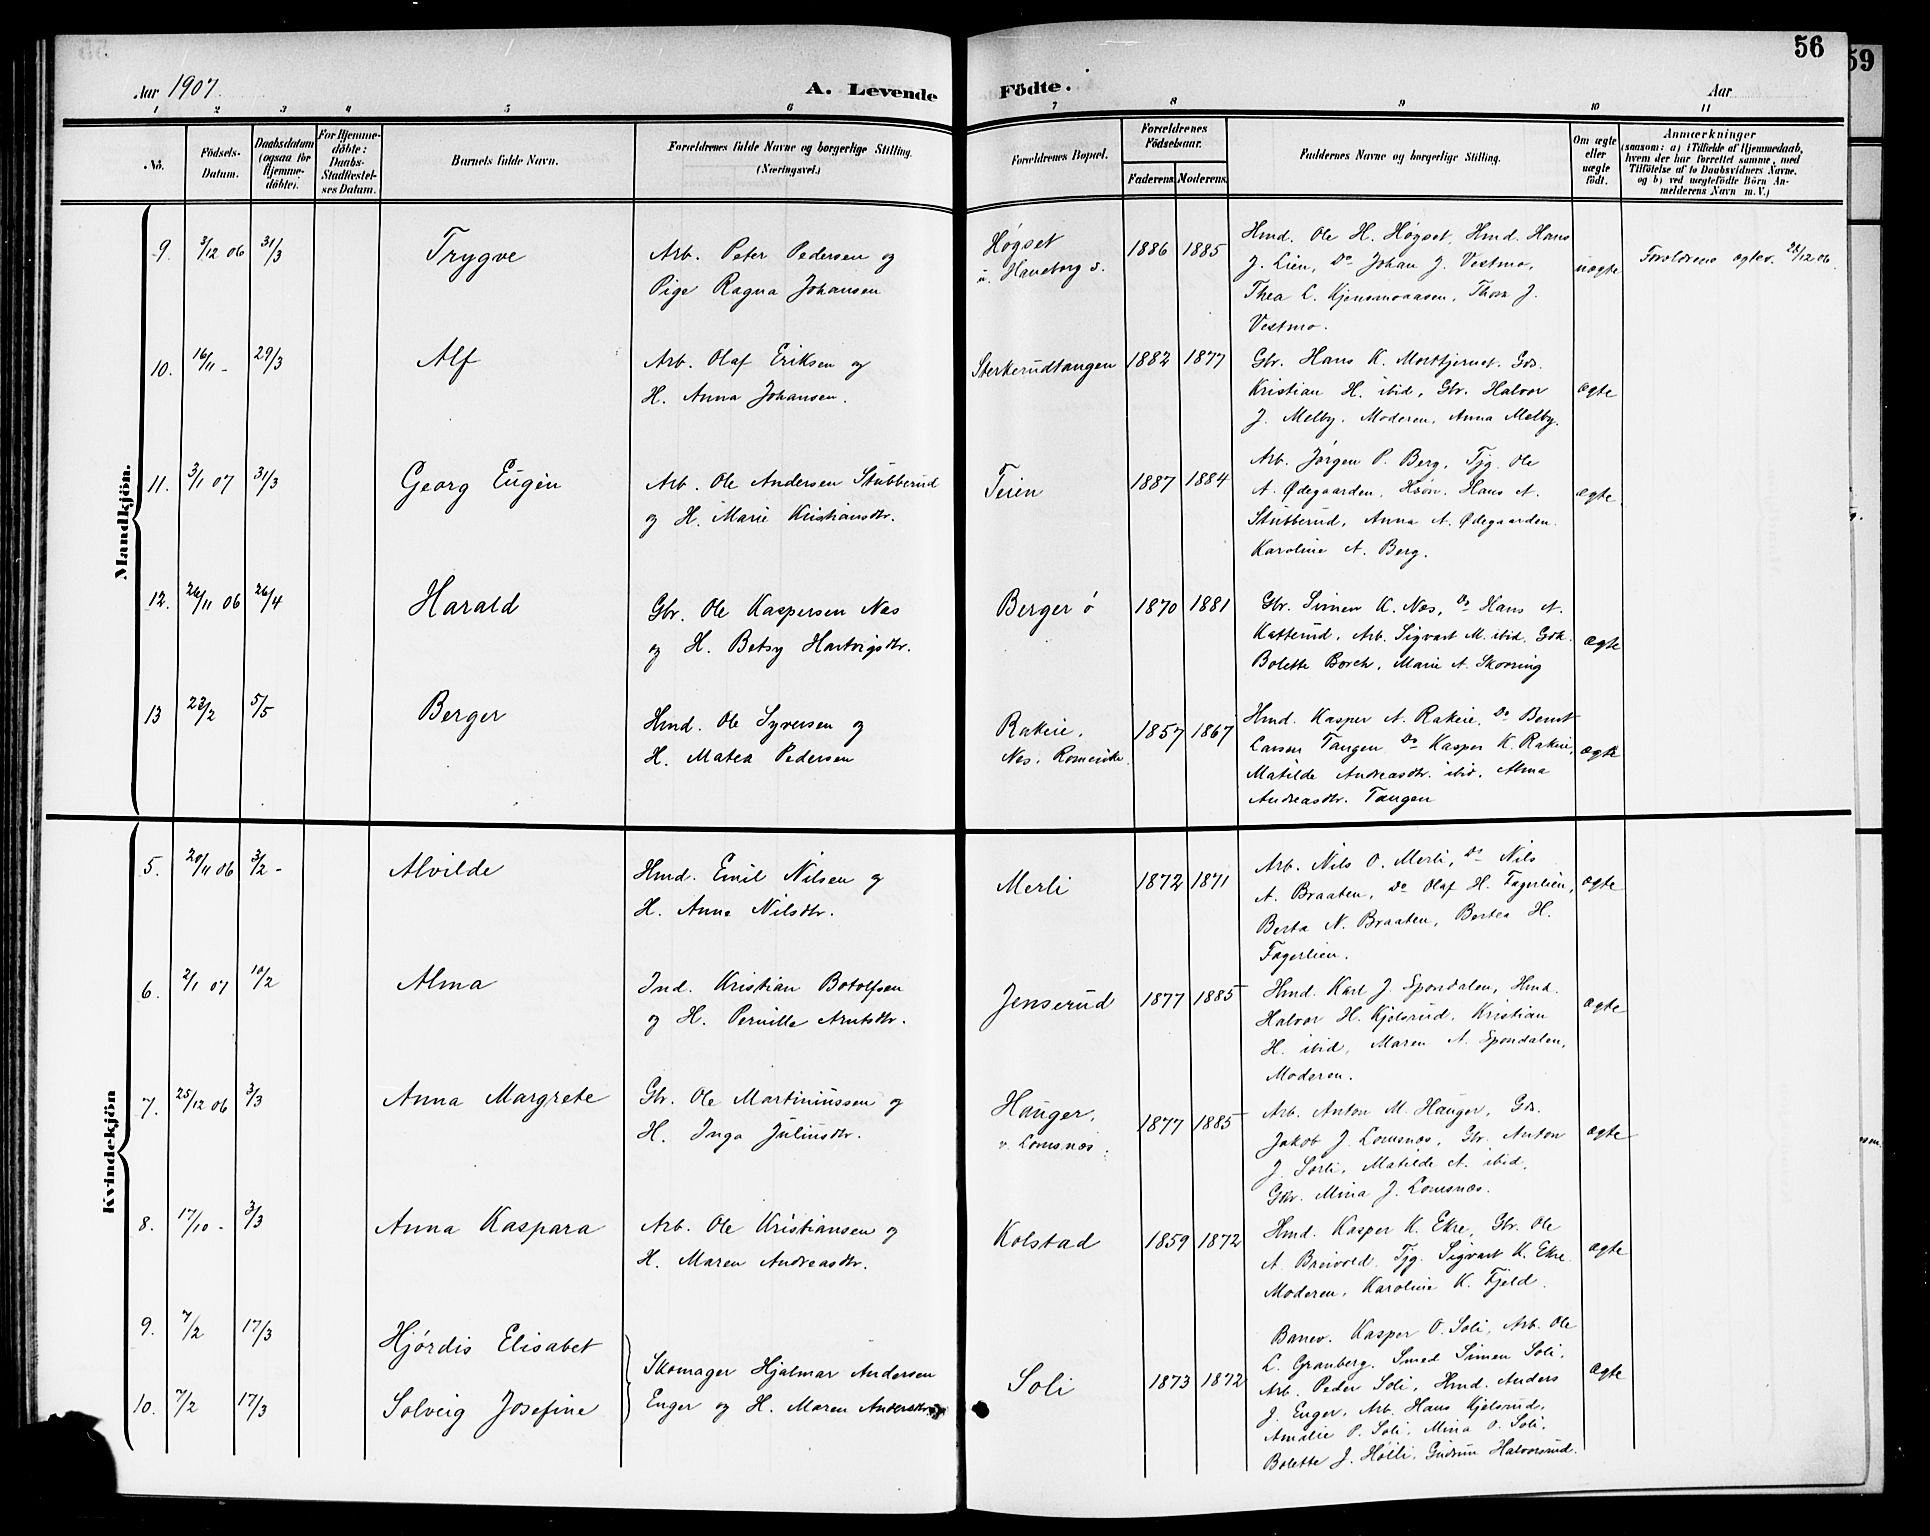 56
59
Aar 1907. A. Levende Födte. Aar
1 2 3 4 5 6 7 8 9 10 11
No. Födsels-Datum. Daabsdatum (ogsaa for Hjemmedöbte). For Hjemmedöbte: Daabs-Stadfæstelses Datum. Barnets fulde Navn. Forældrenes fulde Navne og borgerlige Stilling. (Næringsvei.) Forældrenes Bopæl. Forældrenes Födselsaar. Faderens. Moderens. Faddernes Navne og borgerlige Stilling. Om ægte eller uægte födt. Anmærkninger (saasom: a) i Tilfælde af Hjemmedaab, hvem der har forrettet samme, med Tilföielse af to Daabsvidners Navne, og b) ved uægtefödte Börn Anmelderens Navn m. V.)
Mandkjön.
9. 3/12 06 31/3 Trygve
Arb. Peter Pedersen og
Pige Ragna Johansen
Høgset
u. Haneborg s.
1886 1885
Hmd. Ole H. Høgset, Hmd. Hans
J. Lien, Do Johan J. Vestmo,
Thea L. Kjensmoaasen, Thora J.
Vestmo.
uægte
Forældrene ægtev. 28/12 06.
10. 16/11 - 29/3 Alf
Arb. Olaf Eriksen og
H. Anna Johansen.
Sterkerudtangen 1882 1877
Gbr. Hans K. Mortkjernet, Gds.
Kristian H. ibid, Gbr. Halvor
J. Melby, Moderen, Anna Melby.
ægte
11. 3/1 07 31/3 Georg Eugén
Arb. Ole Andersen Stubberud
og H. Marie Kristiansdtr.
Teien 1887 1884
Arb. Jørgen P. Berg, Tjg. Ole
A. Ødegaarden, Hans A.
Stubberud, Anna A. Ødegaarden.
Karoline A. Berg.
ægte
12. 26/11 06 26/4 Harald
Gbr. Ole Kaspersen Nes
og H. Betsy Hartvigsdtr.
Berger ö 1870 1881
Gbr. Simen K. Nes, Do Hans A.
Katterud, Arb. Sigvart M. ibid, Gdk.
Bolette Borch, Marie A. Skovring
ægte
13 22/2 5/5 Berger
Hmd. Ole Syversen og
H. Matea Pedersen
Rakeie,
Nes, Romerike.
1857 1867
Hmd. Kasper A. Rakeie, Do Bernt
Larsen Tangen Do Kasper K. Rakeie,
Matilde Andreasdtr. ibid, Alma
Andreasdtr. Tangen
ægte
Kvindekjön
5. 20/11 06 3/2 - Alvilde
Hmd. Emil Nilsen og
H. Anna Nilsdtr.
Merli 1872 1871
Arb. Nils O. Merli, Do Nils
A. Braaten, Do Olaf H. Fagerlien,
Berta N. Braaten, Bertea H.
Fagerlien.
ægte
6. 2/1 07 10/2 Alma
Ind. Kristian Botolfsen
og H. Pernille Arntsdtr.
Jenserud 1877 1885
Hmd. Karl J. Spondalen, Hmd.
Halvor H. Kjelsrud, Kristian
H. ibid, Maren A. Spondalen,
Moderen.
ægte
7. 25/12 06 3/3 Anna Margrete
Gbr. Ole Martiniussen og
H. Inga Juliusdtr.
Hauger,
v. Lomsnæs.
1877 1885
Arb. Anton M. Hauger, Gds.
Jakob J. Lomsnæs, Gbr. Anton
J. Sørli, Matilde A. ibid,
Gdk. Mina J. Lomsnæs.
ægte
8. 17/10 - 3/3 Anna Kaspara
Arb. Ole Kristiansen og
H. Maren Andreasdtr.
Kolstad 1859 1872
Hmd. Kasper K. Ekre, Gbr. Ole
A. Breivold, Tjg. Sigvart K. Ekre
Moderen, Karoline K. Fjeld.
ægte
9. 7/2 17/3 Hjørdis Elisabet
10. 7/2 17/3 Solveig Josefine
Skomager Hjalmar Andersen
Enger og H. Maren Andersdtr.
Soli 1873 1872
Banev. Kasper O. Soli, Arb. Ole
L. Granberg, Smed Simen Soli,
Arb. Peder Soli, Hmd. Anders
J. Enger, Arb. Hans Kjelsrud,
Amalie P. Soli, Mina O. Soli,
Bolette J. Høili, Gudrun Halvorsrud.
ægte